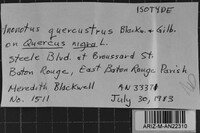 ISOTYPE
Inonotus quercustris Blackw. & Gilb.
on Quercus nigra L.
Steele Blvd. at Broussard St.
Baton Rouge, East Baton Rouge Parish
Meredith Blackwell AN 33371
No. 1511 July 30, 1983
ARIZ-M-AN22310